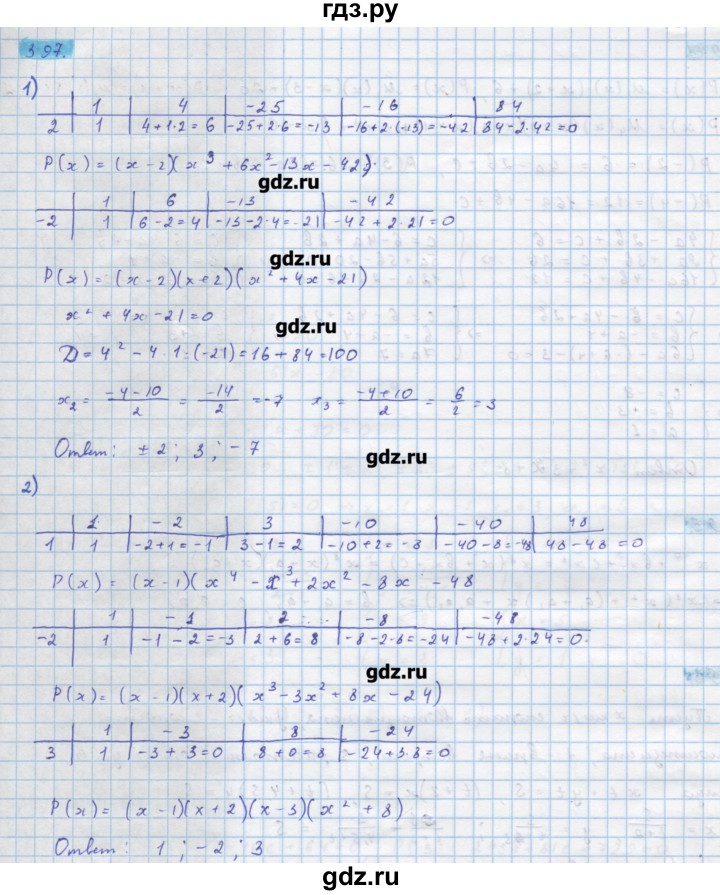 гдз.ру
397.
1)
1 4 -25 -16 84
2 1 4+1·2=6 -25+2·6=-13 -16+2·(-13)=-42 84-2·42=0
P(x)=(x-2)(x³+6x²-13x-42)
гдз.ру
1 6 -13 -42
-2 1 6-2=4 -13-2·4=-21 -42+2·21=0
гдз.ру
P(x)=(x-2)(x+2)(x²+4x-21)
x²+4x-21=0
гдз.ру
D=4²-4·1·(-21)=16+84=100
x₂=(-4-10)/2=-14/2=-7 x₃=(-4+10)/2=6/2=3
Ответ: ±2; 3; -7
гдз.ру
2)
1 -2 3 -10 -40 48
1 1 -2+1=-1 3-1=2 -10+2=-8 -40-8=-48 48-48=0
P(x)=(x-1)(x⁴-x³+2x²-8x-48
1 -1 2 -8 -48
-2 1 -1-2=-3 2+6=8 -8-2·8=-24 -48+2·24=0
гдз.ру
P(x)=(x-1)(x+2)(x³-3x²+8x-24)
1 -3 8 -24
3 1 -3+3=0 8+0=8 -24+3·8=0
гдз.ру
P(x)=(x-1)(x+2)(x-3)(x²+8)
Ответ: 1; -2; 3
гдз.ру